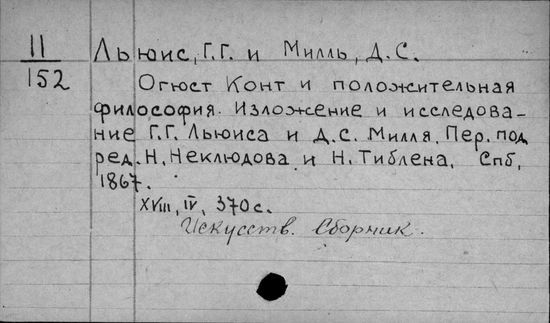 11
152
Льюис, Г.Г. и Милль, Д.С.
Огюст Конт и положительная
философия. Изложение и исследова-
ние Г.Г. Льюиса и Д.С. Милля. Пер. под
ред. Н. Неклюдова и Н. Тиблена. Спб,
1867.
XVIII, IV, 370 с.
Искусств. Сборник.